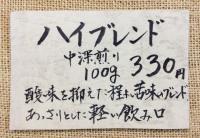 ハイブレンド
中深煎り
100g 330円
酸味を抑えた程よい苦味のブレンド
あっさりとした軽い飲み口